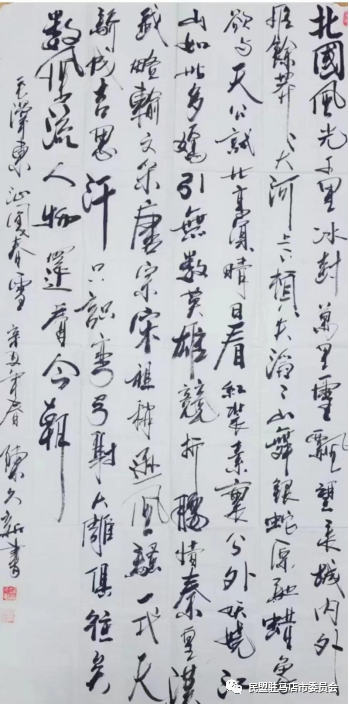 北國風光千里冰封萬里雪飄望長城内外
惟餘莽〻大河上下頓失滔〻山舞銀蛇原馳蠟象
欲与天公試比高須晴日看紅裝素裹分外妖嬈江
山如此多嬌引無數英雄競折腰惜秦皇漢
武略輸文采唐宗宋祖稍遜風騷一代天
驕成吉思汗只識彎弓射大雕俱往矣
數風流人物還看今朝
毛澤東沁園春雪 辛丑年春 書
民盟驻马店市委员会